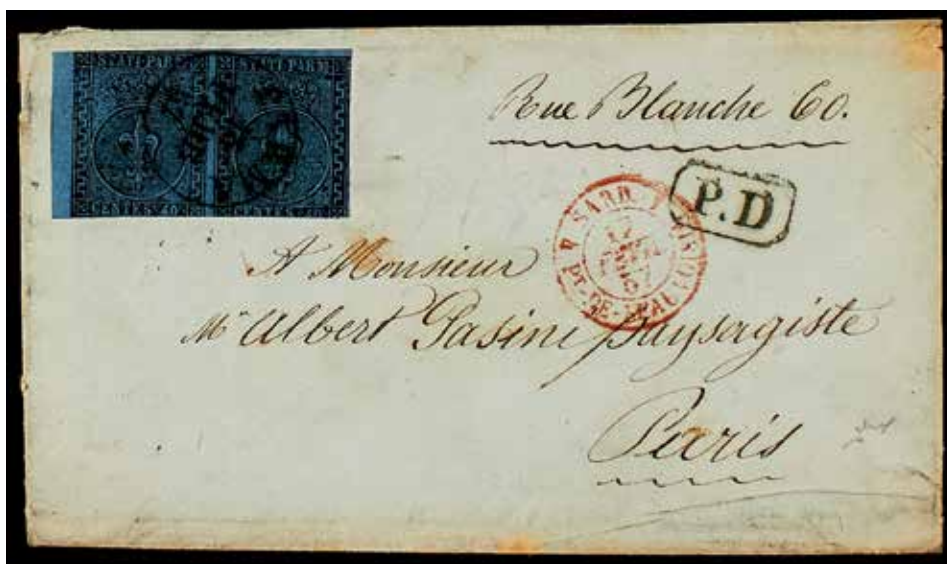 STATI PARM STATI PARM
CENTES. 40 CENTES. 40
Rue Blanche 60.
P.D
SARD.
PT-DE-BEAUVOISIN
A Monsieur
Mr Albert Pasini paysagiste
Paris